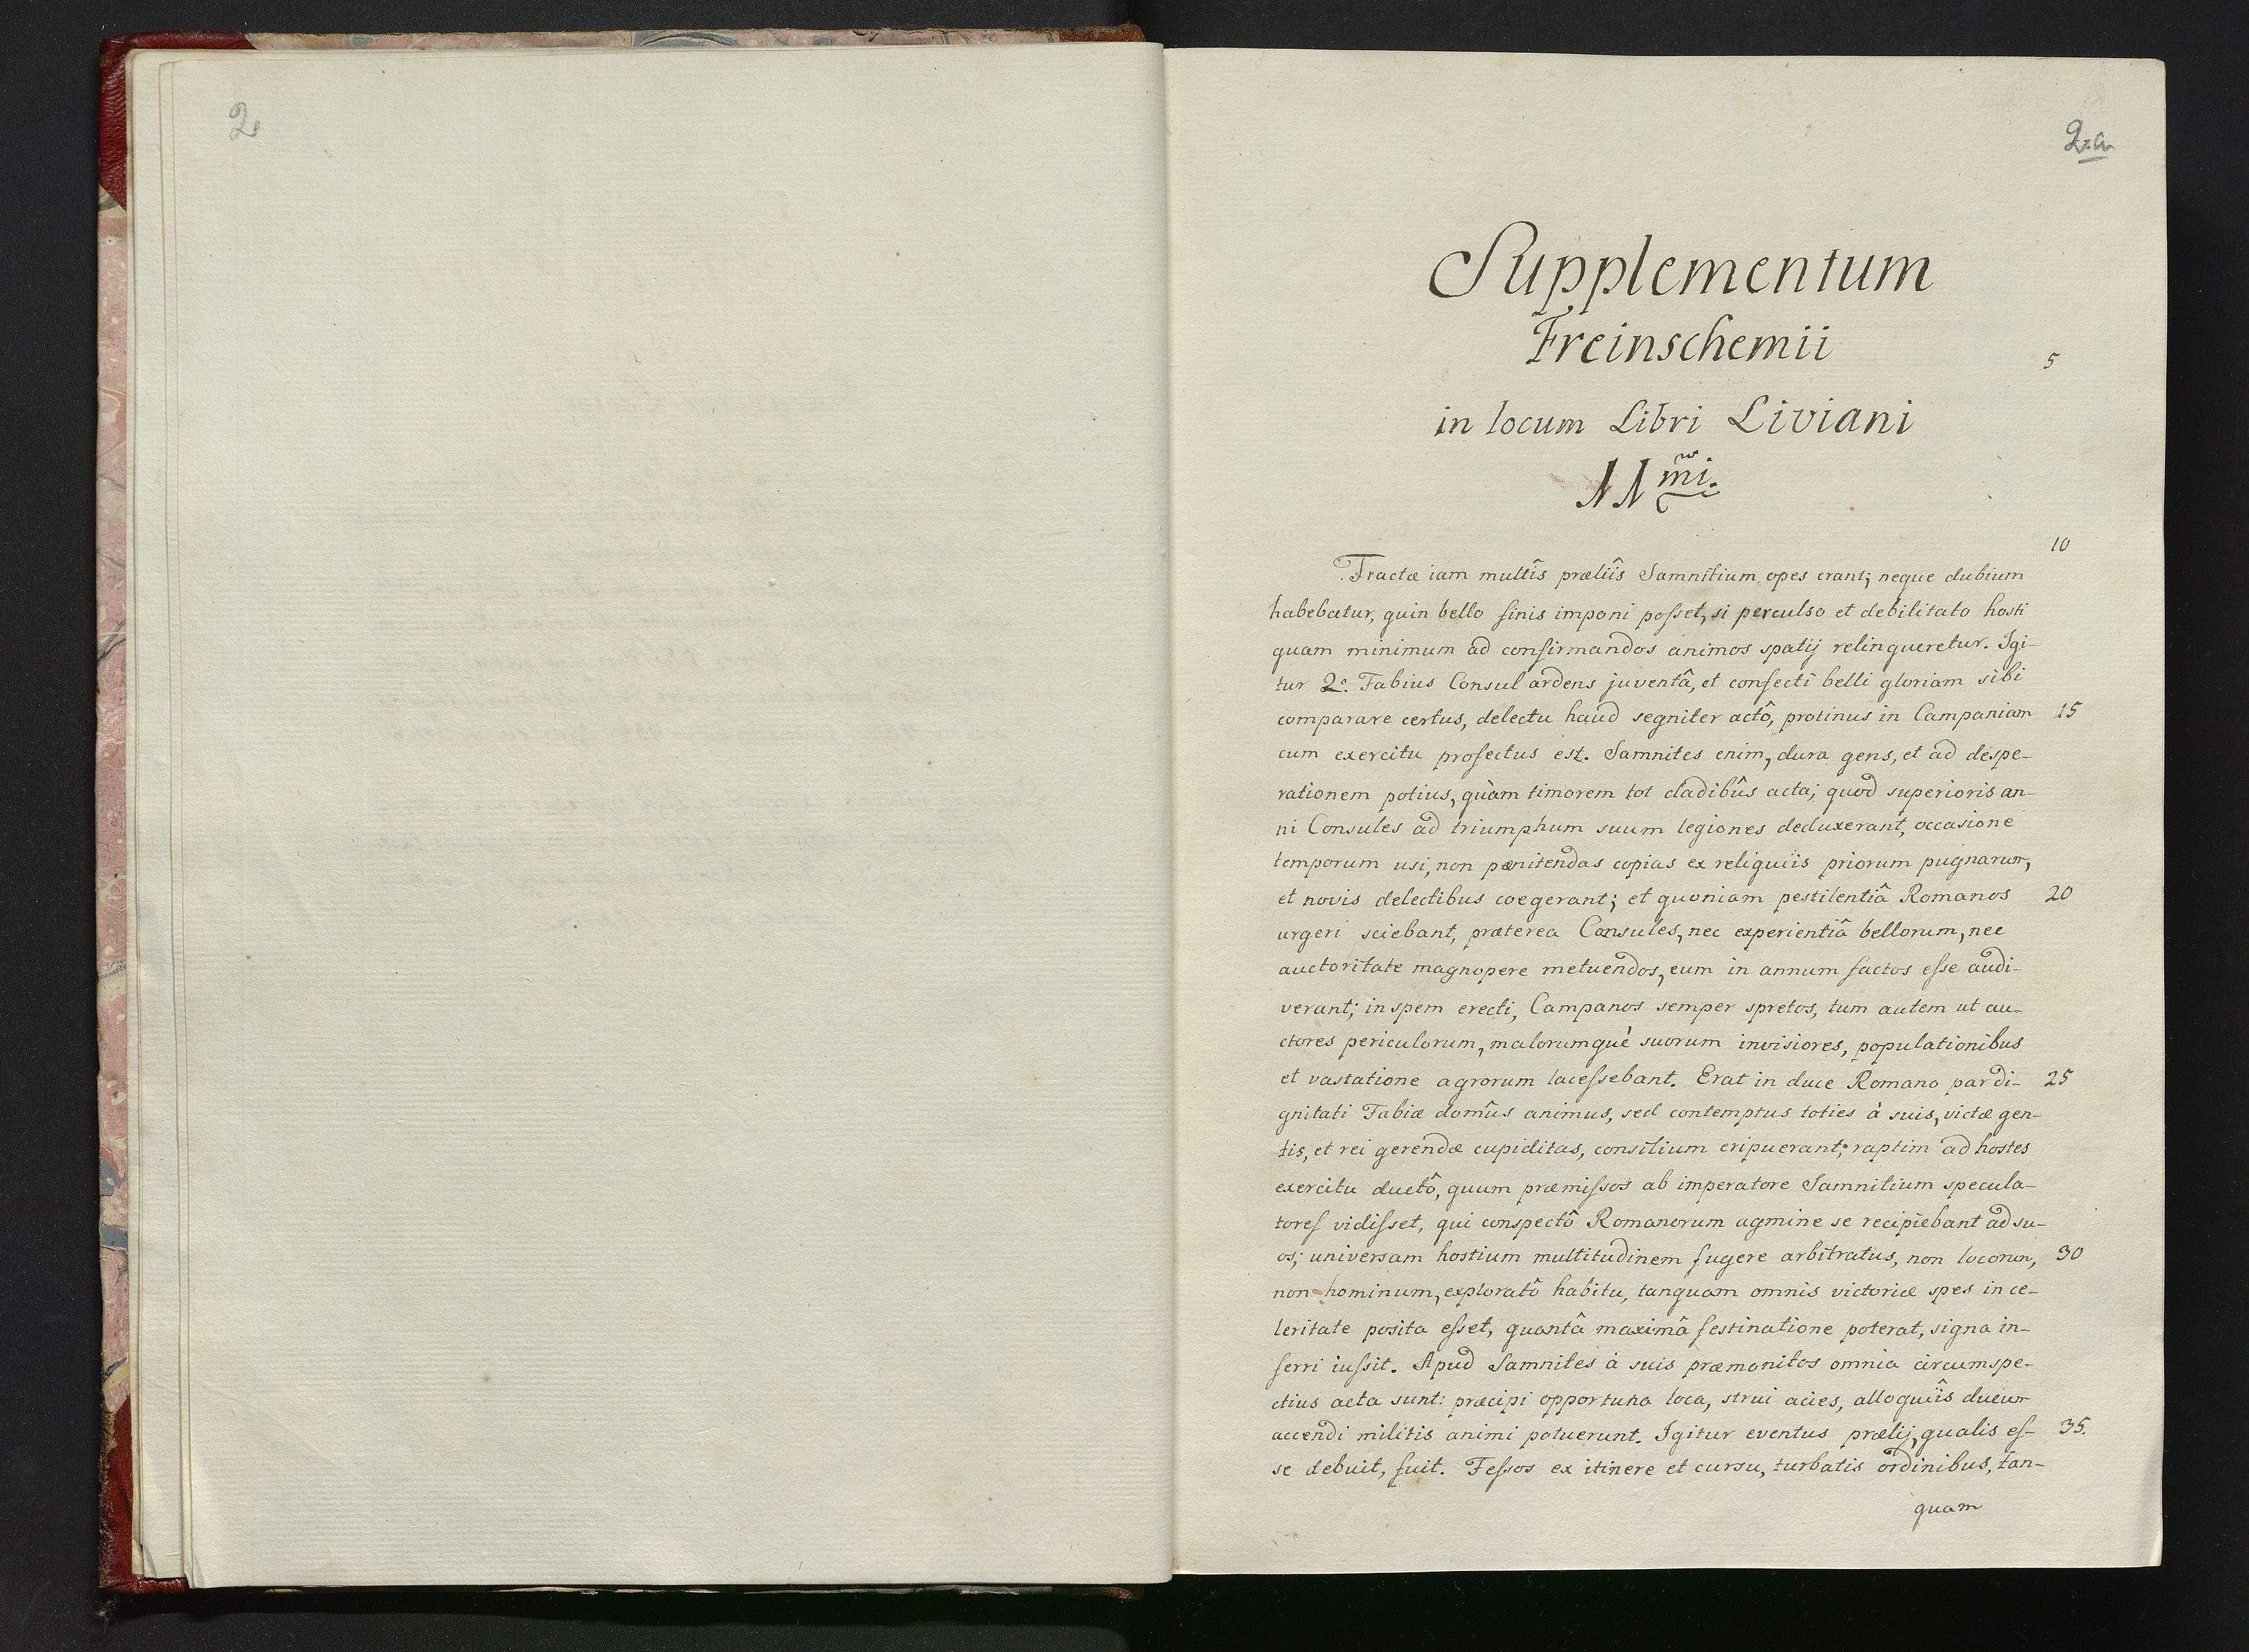 2
2.a
Supplementum
Freinschemii
5
in locum Libri Liviani
11mi.
10
Fractæ iam multîs præliîs Samnitium opes erant; neque dubium
habebatur, quin bello finis imponi posset, si perculso et debilitato hosti
quam minimum ad confirmandos animos spatij relinqueretur. Igi-
tur Q. Fabius Consul ardens juventâ, et confecti belli gloriam sibi
comparare certus, delectu haud segniter actô, protinus in Campaniam 15
cum exercitu profectus est. Samnites enim, dura gens, et ad despe-
rationem potius, quàm timorem tot cladibûs acta; quod superioris an-
ni Consules ad triumphum suum legiones deduxerant, occasione
temporum usi, non pænitendas copias ex reliquiis priorum pugnarum,
et novis delectibus coegerant; et quoniam pestilentiâ Romanos 20
urgeri sciebant, præterea Consules, nec experientiâ bellorum, nec
auctoritate magnopere metuendos, eum in annum factos esse audi-
verant; in spem erecti, Campanos semper spretos, tum autem ut au-
ctores periculorum, malorumquè suorum invisiores, populationibus
et vastatione agrorum lacessebant. Erat in duce Romano par di- 25
gnitati Fabiæ domûs animus, sed contemptus toties à suis, victæ gen-
tis, et rei gerendæ cupiditas, consilium eripuerant; raptim ad hostes
exercitu ductô, quum præmissos ab imperatore Samnitium specula-
tores vidisset, qui conspectô Romanorum agmine se recipiebant ad su-
os; universam hostium multitudinem fugere arbitratus, non locorum, 30
non hominum, exploratô habitu, tanquam omnis victoriæ spes in ce-
leritate posita esset, quantâ maximâ festinatione poterat, signa in-
ferri iussit. Apud Samnites à suis præmonitos omnia circumspe-
ctius acta sunt: præcipi opportuna loca, strui acies, alloquiîs ducum
accendi militis animi potuerunt. Igitur eventus prælij, qualis es- 35.
se debuit, fuit. Fessos ex itinere et cursu, turbatis ordinibus, tan-
quam